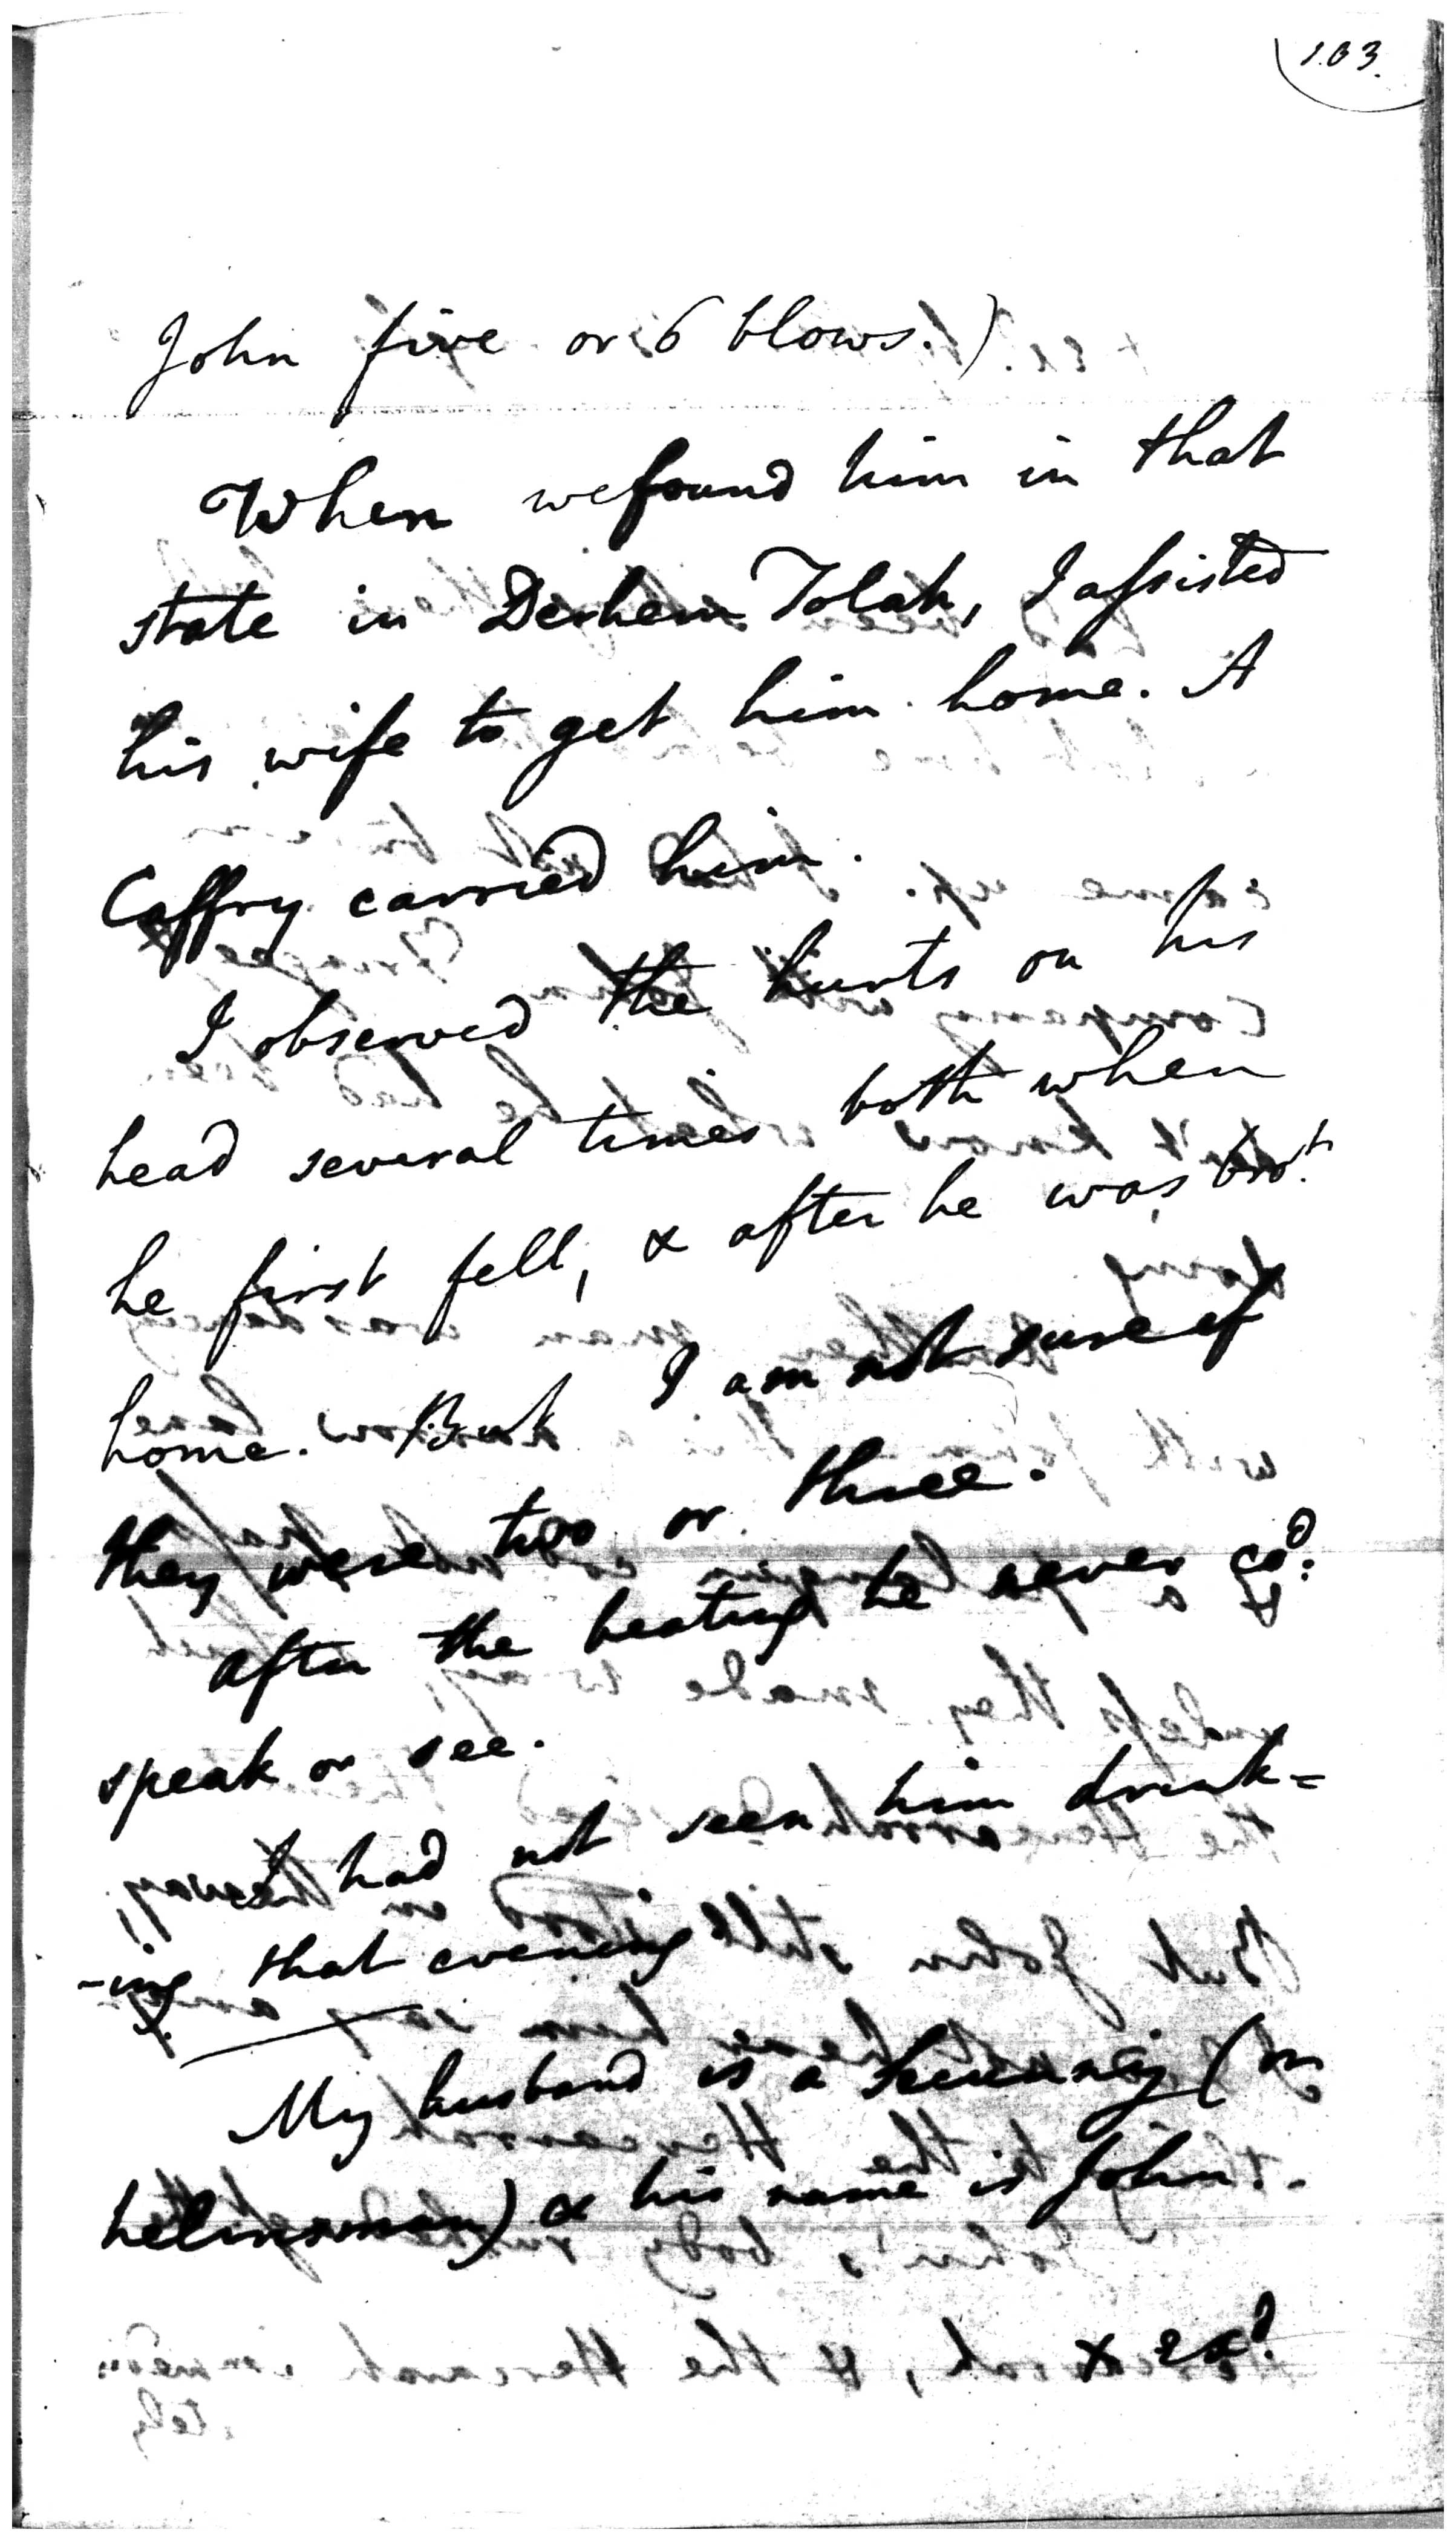 103.
John five or 6 blows.)
When we found him in that
state in Derhem Tolah, I assisted
his wife to get him home. A
Caffry carried him.
I observed the hurts on his
head several times both when
he first fell, & after he was bro.t
home. But I am not sure if
they were two or three.
After the beating he never co.d
speak or see.
I had not seen him drink=
-ing that evening
My husband is a Seccunny (or
helmsman) & his name is John